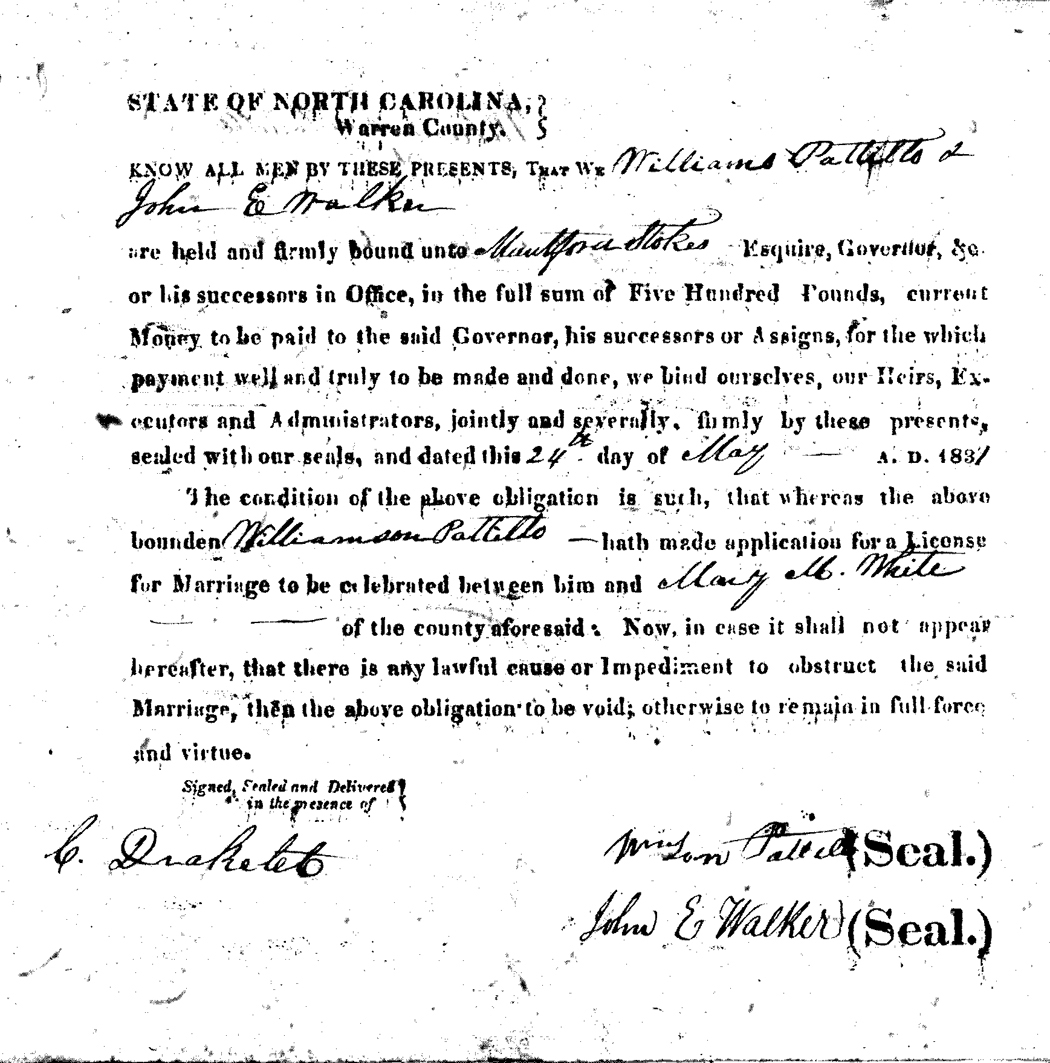 STATE OF NORTH CAROLINA,
Warren County.
KNOW ALL MEN BY THESE PRESENTS, THAT WE Williams Pattillo &
John E Walker
are held and firmly bound unto Mountford Stokes Esquire, Governor, &c.
or his successors in Office, in the full sum of Five Hundred Pounds, current
Money to be paid to the said Governor, his successors or Assigns, for the which
payment well and truly to be made and done, we bind ourselves, our Heirs, Ex-
ecutors and Administrators, jointly and severally, firmly by these presents,
sealed with our seals, and dated this 24th day of May — A. D. 1831
The condition of the above obligation is such, that whereas the above
bounden Williamson Pattillo — hath made application for a License
for Marriage to be celebrated between him and Mary M. White
— — of the county aforesaid: Now, in case it shall not appear
hereafter, that there is any lawful cause or Impediment to obstruct the said
Marriage, then the above obligation to be void; otherwise to remain in full force
and virtue.
Signed, Sealed and Delivered
in the presence of
C. Drake
Wmson Pattillo (Seal.)
John E Walker (Seal.)